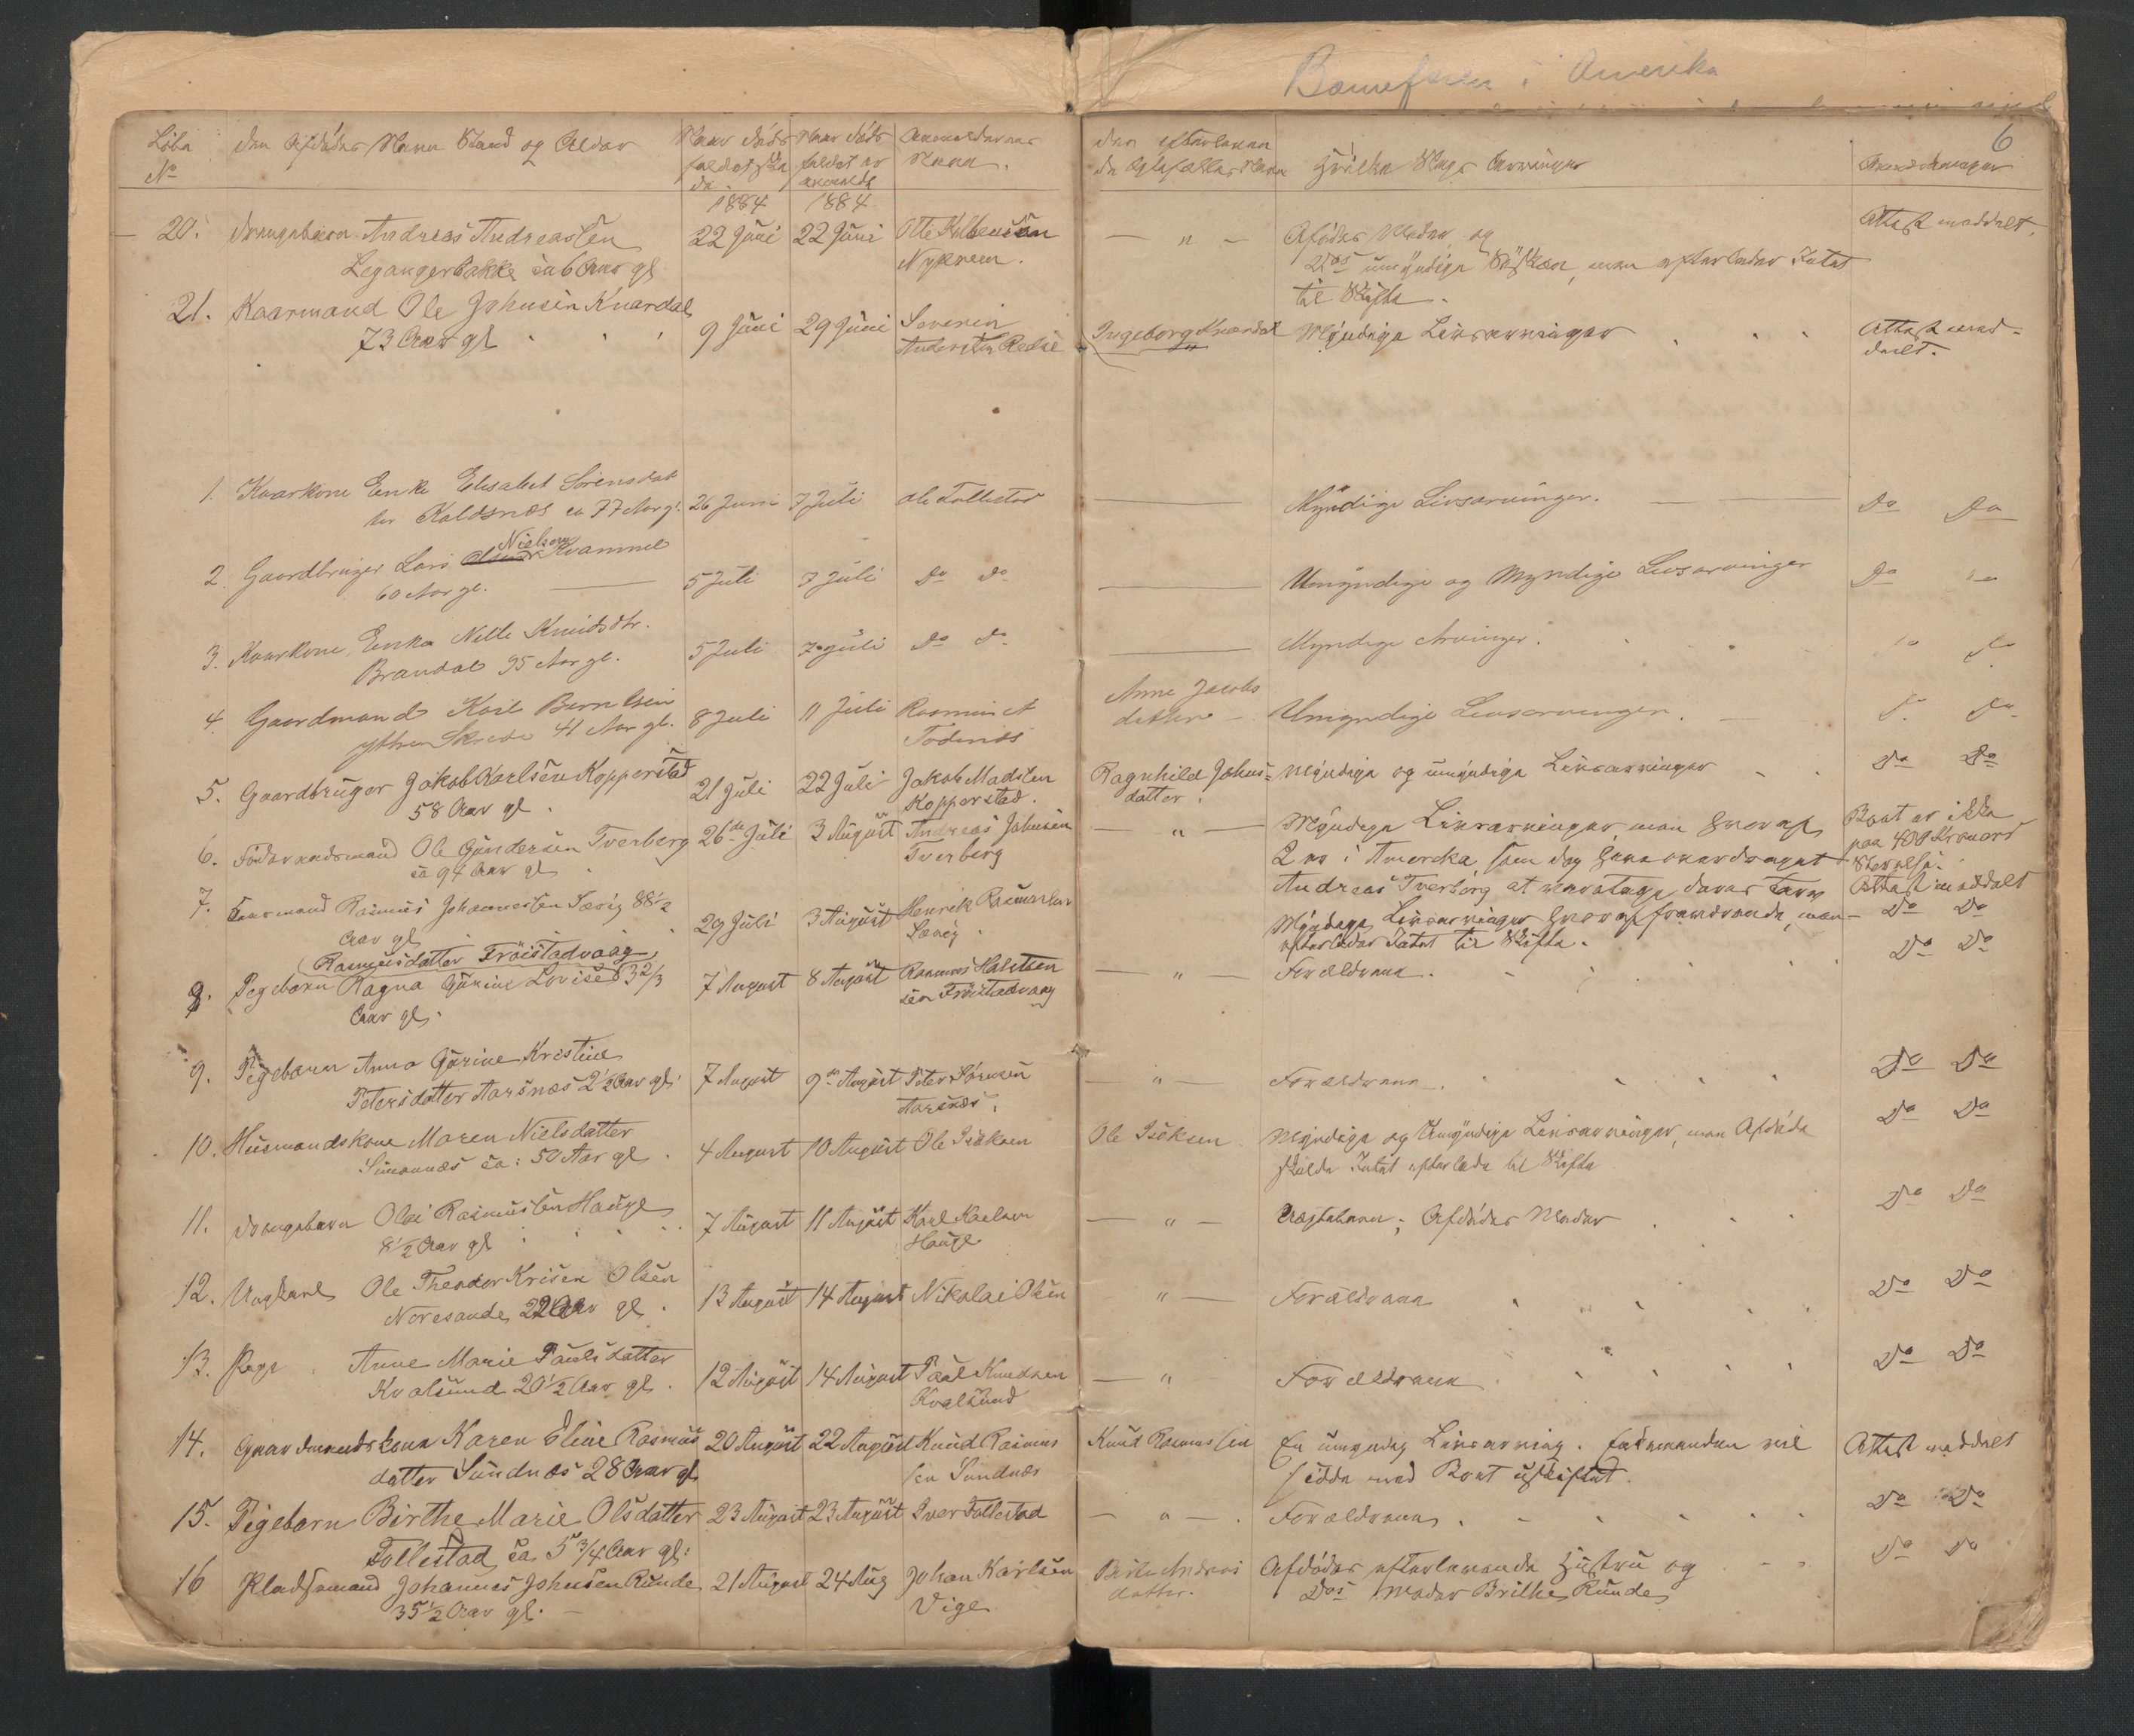 Barnefader i Amerika
6
Løbe No
den Afdødes Navn Stand og Alder
Naar dødsfaldet skede
Naar dødsfaldet er anmeldt
Anmelderens Navn.
den efterlevende Ægtefælles Navn
Hvilke Slags Arvinger
Anmærkninger
1884 1884
20. Drengebarn Andreas Andreassen
Legangerbakke ca 6 Aar gl
22 Juni 22 Juni Otte
— " — Afdødes Moder og
Do umyndige Søskende, men efterlader Intet
til Skifte.
Attest meddelt.
21. Kaarmand Ole Johnsen Kvardal
73 Aar gl
9 Juni 29 Juni Severin
Andersen
Ingeborg Kvardal Myndige Livsarvinger
Attest meddelt.
1. Kaarkone Enke Elisabet Sørensdatter
Koldsnæs ca 77 Aar gl.
26 Juni 7 Juli Ole Tollestad
Myndige Livsarvinger.
Do Do
2. Gaardbruger Lars Nielsen Kvamme
60 Aar gl.
5 Juli 7 Juli Do Do
Umyndige og Myndige Livsarvinger
Do Do
3. Kaarkone, Enke Nille Knudsdtr.
Brandal 95 Aar gl.
5 Juli 7 Juli Do Do
Myndige Arvinger.
Do Do
4. Gaardmand Karl Berntsen
ytre Skrede 41 Aar gl.
8 Juli 11 Juli Rasmus A
Todnes
Anne Jacobs
datter — Umyndige Livsarvinger.
Do Do
5. Gaardbruger Jakob Karlsen Kopperstad
58 Aar gl.
21 Juli 22 Juli Jakob Madsen
Kopperstad.
Ragnhild Johns=
datter. Myndige og umyndige Livsarvinger
Do Do
6. Føderaadsmand Ole Gundersen Tverberg
ca 94 Aar gl
26de Juli 3 August Andreas Johnsen
Tverberg
— " — Myndige Livsarvinger, men hvoraf
2 er i Amerika, som dog have
Andreas Tverberg at varetage deres Tarv
Boet er ikke
paa 400 Kroners
Størrelse.
Attest meddelt
7. Kaarmand Rasmus Johannessen Sævig 88½
Aar gl
29 Juli 3 August Henrik Rasmussen
Sævig.
Myndige Livsarvinger hvoraf fraværende, men
efterlader Intet til Skifte.
Do Do
8. Pigebarn Ragna Gurine Lovise
(Rasmusdatter Frøistadvaag)
3⅔
Aar gl.
7 August 8 August Rasmus
sen Frøistadvaag
— " — Forældrene.
Do Do
9. Pigebarn Anna Gurine Kristine
Petersdatter Aarsnæs 2½ Aar gl.
7 August 9de August Peter Sørensen
Aarsnæs.
— " — Forældrene.
Do Do
10. Husmandskone Maren Nielsdatter
Simannæs ca: 50 Aar gl.
4 August 10 August Ole Isaksen
Ole Isaksen Myndige og Umyndige Livsarvinger, men Afdøde
skulde Intet efterlade til Skifte
Do Do
11. Drengebarn Olai Rasmussen Hauge
8½ Aar gl
7 August 11 August Karl Karlsen
Hauge
— " — Uægtebarn; Afdødes Moder
Do Do
12. Ungkarl Ole Theodor Krisen Olsen
Noresande, 22 Aar gl.
13 August 14 August Nikolai Olsen
" — Forældrene
Do Do
13. Pige Anne Marie Paulsdatter
Kvalsund 20½ Aar gl.
12 August 14 August Paul Knudsen
Kvalsund
— " Forældrene
Do Do
14. Gaardmandskone Karen Eline Rasmus
datter Sundnæs 28 Aar gl
20 August 22 August Knud Rasmus
sen Sundnæs
Knud Rasmussen En umyndig Livsarving. Enkemanden vil
sidde med Boet uskiftet.
Attest meddelt
15. Pigebarn Birthe Marie Olsdatter
Tollestad ca 5¾ Aar gl:
23 August 23 August Iver Tollestad
— " — Forældrene.
Do Do
16 Pladsmand Johannes Johnsen Runde
35½ Aar gl. —
21 August 24 Aug Johan Karlsen
Vige
Berte Andreas
datter. Afdødes efterlevende Hustru og
Dos Moder Brithe Runde
Do Do